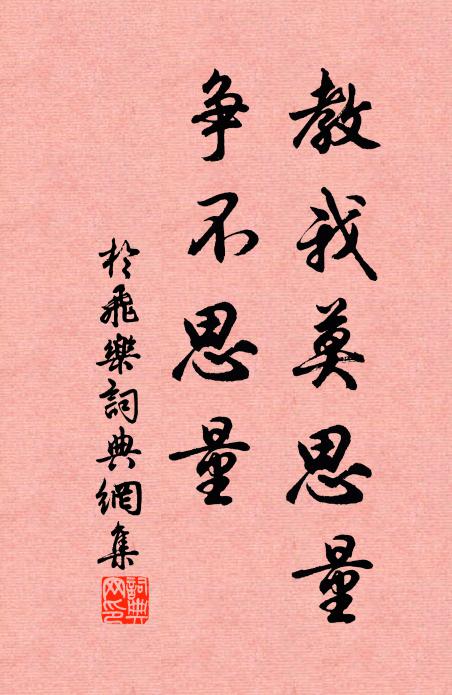 教我莫思量
争不思量
於飛樂詞典網集
詞典
网印